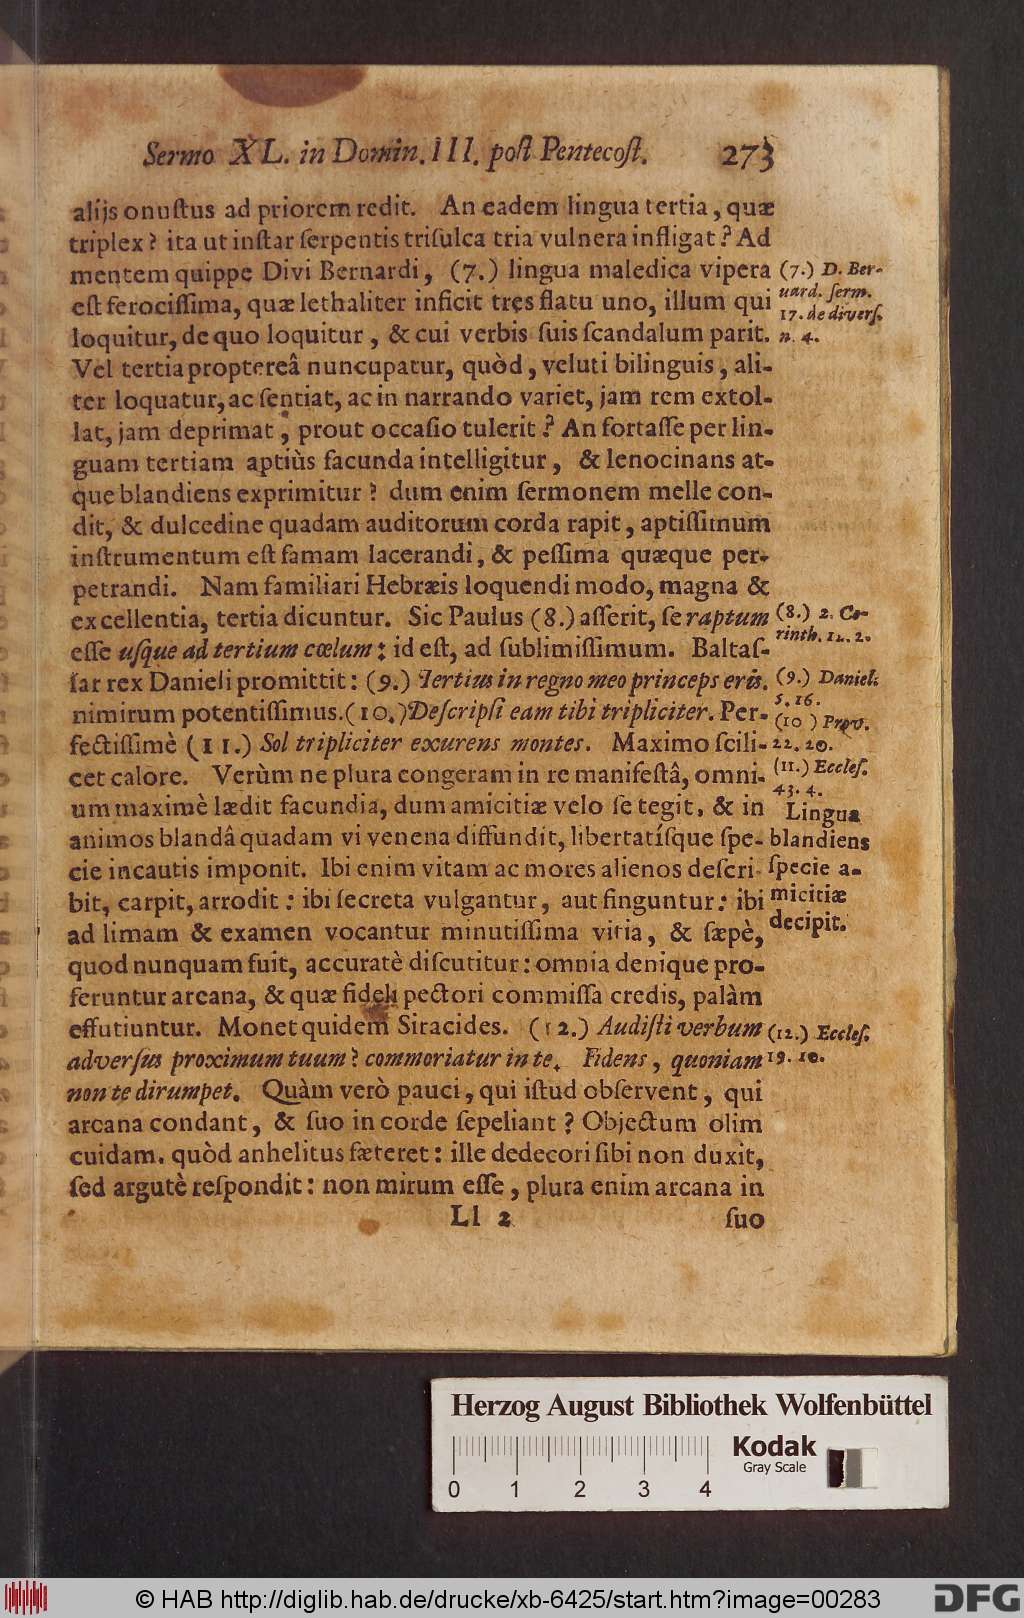 Sermo XL. in Domin. III. poſt Pentecoſt. 273
alijs onuſtus ad priorem redit. An eadem lingua tertia, quæ
triplex? ita ut inſtar ſerpentis triſulca tria vulnera infligat? Ad
mentem quippe Divi Bernardi, (7.) lingua maledica vipera
eſt ferociſſima, quæ lethaliter inficit tres flatu uno, illum qui
loquitur, de quo loquitur, & cui verbis ſuis ſcandalum parit.
Vel tertia proptereâ nuncupatur, quòd, veluti bilinguis, ali-
ter loquatur, ac ſentiat, ac in narrando variet, jam rem extol-
lat, jam deprimat, prout occaſio tulerit? An fortaſſe per lin-
guam tertiam aptiùs facunda intelligitur, & lenocinans at-
que blandiens exprimitur? dum enim ſermonem melle con-
dit, & dulcedine quadam auditorum corda rapit, aptiſſimum
inſtrumentum eſt famam lacerandi, & peſſima quæque per-
petrandi. Nam familiari Hebræis loquendi modo, magna &
excellentia, tertia dicuntur. Sic Paulus (8.) aſſerit, ſe raptum
eſſe uſque ad tertium cœlum: id eſt, ad ſublimiſſimum. Baltaſ-
ſar rex Danieli promittit: (9.) Tertius in regno meo princeps eris.
nimirum potentiſſimus. (10.) Deſcripſi eam tibi tripliciter. Per-
fectiſſimè (11.) Sol tripliciter exurens montes. Maximo ſcili-
cet calore. Verùm ne plura congeram in re manifeſtâ, omni-
um maximè lædit facundia, dum amicitiæ velo ſe tegit, & in
animos blandâ quadam vi venena diffundit, libertatíſque ſpe-
cie incautis imponit. Ibi enim vitam ac mores alienos deſcri-
bit, carpit, arrodit: ibi ſecreta vulgantur, aut finguntur: ibi
ad limam & examen vocantur minutiſſima vitia, & ſæpè,
quod nunquam fuit, accuratè diſcutitur: omnia denique pro-
feruntur arcana, & quæ fideli pectori commiſſa credis, palàm
effutiuntur. Monet quidem Siracides. (12.) Audiſti verbum
adverſus proximum tuum? commoriatur in te. Fidens, quoniam
non te dirumpet. Quàm verò pauci, qui iſtud obſervent, qui
arcana condant, & ſuo in corde ſepeliant? Objectum olim
cuidam. quòd anhelitus fæteret: ille dedecori ſibi non duxit,
ſed argutè reſpondit: non mirum eſſe, plura enim arcana in
Ll 2 ſuo
(7.) D. Ber-
nard. ſerm.
17. de diverſ.
n. 4.
(8.) 2. Co-
rinth. 12. 2.
(9.) Daniel.
5. 16.
(10) Prov.
22. 20.
(11.) Eccleſ.
43. 4.
Lingua
blandiens
ſpecie a-
micitiæ
decipit.
(12.) Eccleſ.
19. 10.
Herzog August Bibliothek Wolfenbüttel
Kodak
Gray Scale
0 1 2 3 4
© HAB http://diglib.hab.de/drucke/xb-6425/start.htm?image=00283
DFG